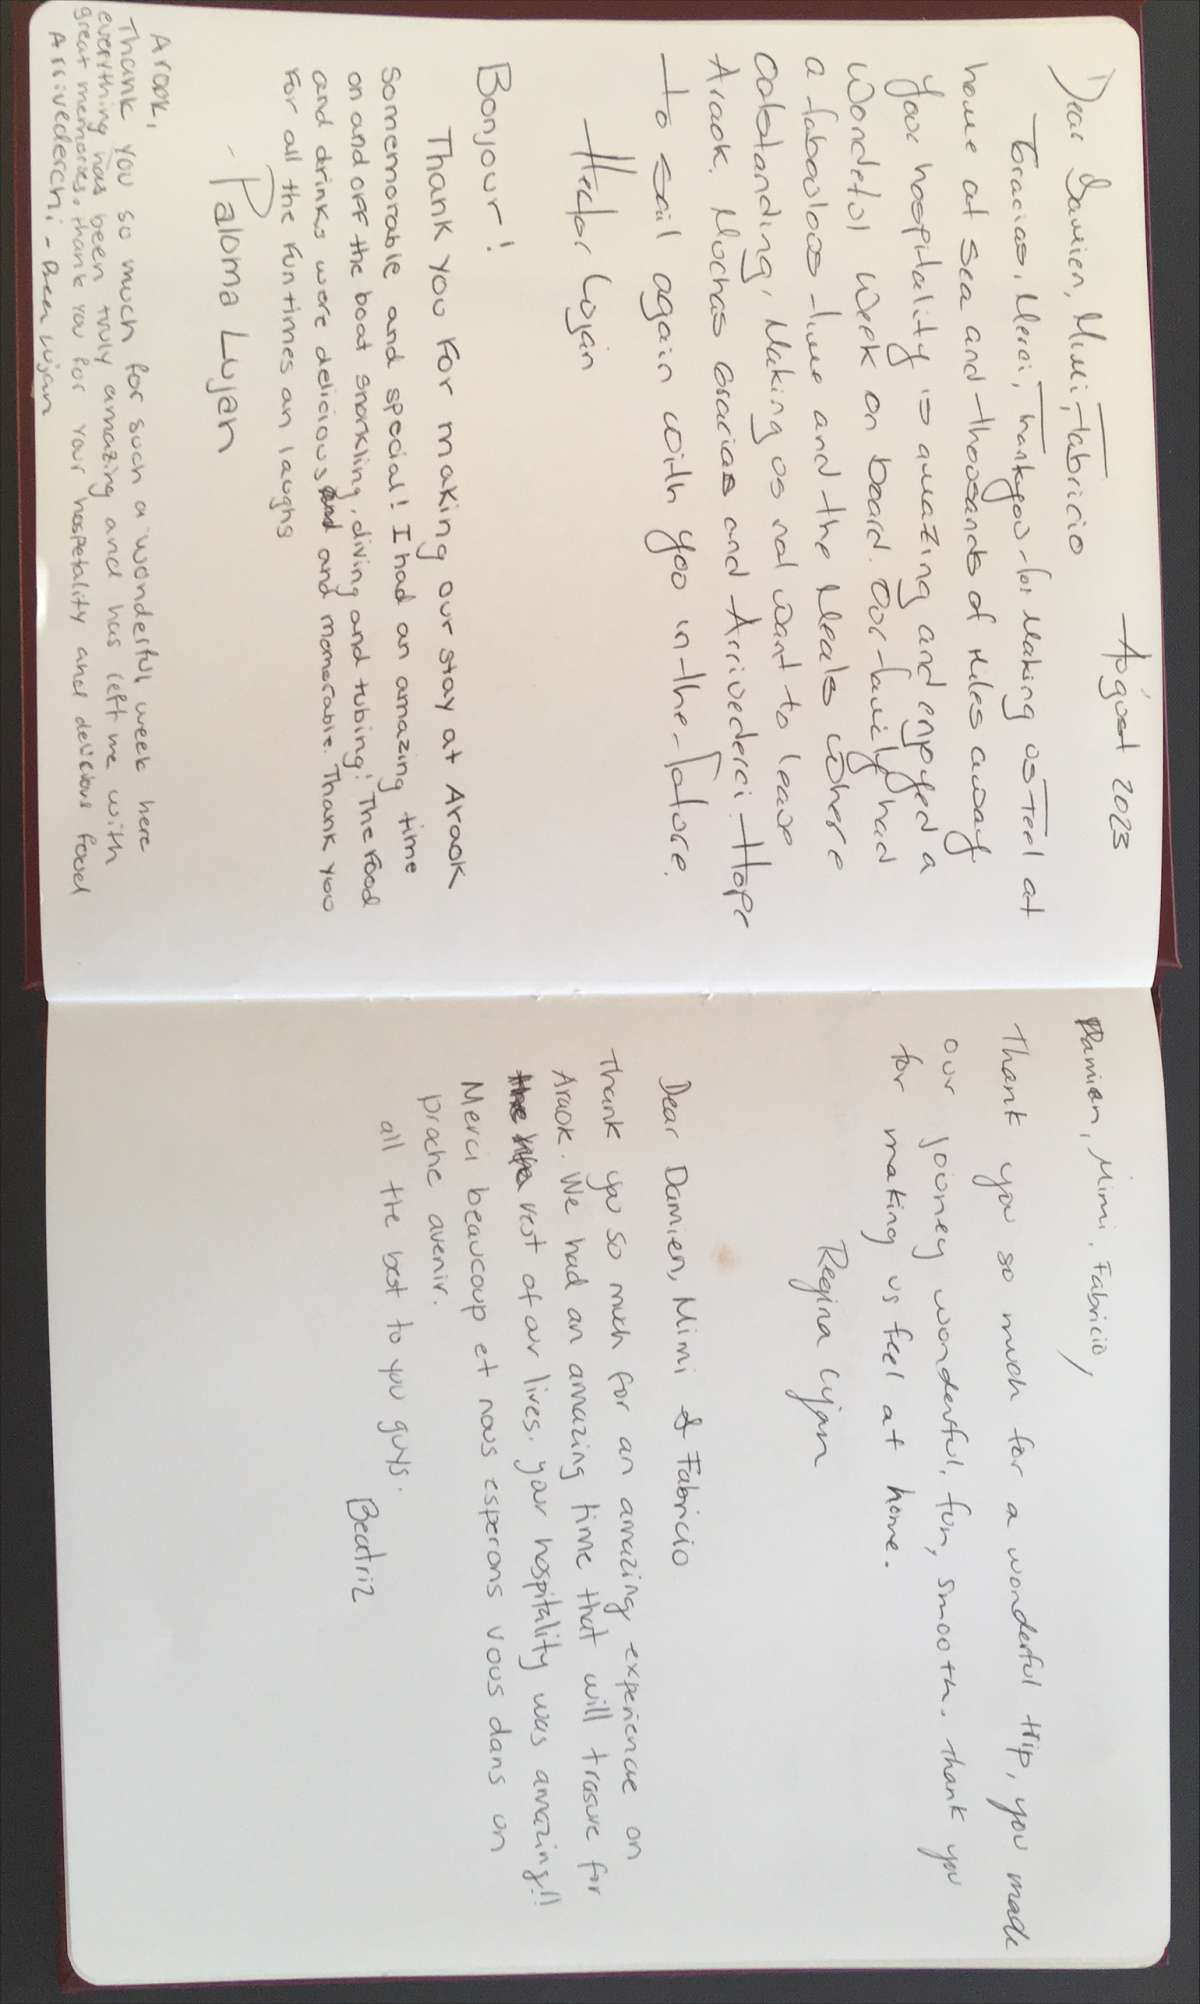 August 2023
Dear Damien, Mimi, Fabricio
Gracias, Merci, Thank you for Making us Feel at
home at sea and thousands of Miles away
Your hospitality is amazing and enjoyed a
Wondeful Week on board. Our family had
a fabulous time and the Meals where
Oobtanding, Making us not want to leave
Araok. Muchas Gracias and Arrivederci. Hope
to sail again with you in the future.
Hector Lujan
Bonjour!
Thank you For making our stay at Araok
Somemorable and special! I had an amazing time
on and off the boat snorkling, diving and tubing! The Food
and drinks were delicious and memorable. Thank you
For all the Fun times an laughs
- Paloma Lujan
Araok,
Thank you so much for such a wonderful week here
everything has been truly amazing and has left me with
great memories, thank you for your hospetality and delicious food
Arrivederchi - Lujan
Damien, Mimi, Fabricio,
Thank you so much for a wonderful trip, you made
our joiney wonderful, fun, smooth, thank you
for making us feel at home.
Regina Lujan
Dear Damien, Mimi & Fabricio
Thank you so much for an amazing experience on
Araok. We had an amazing time that will trasure for
the rest of our lives, your hospitality was amazing!!
Merci beaucoup et nous esperons vous dans un
proche avenir.
all the best to you guys.
Beatriz